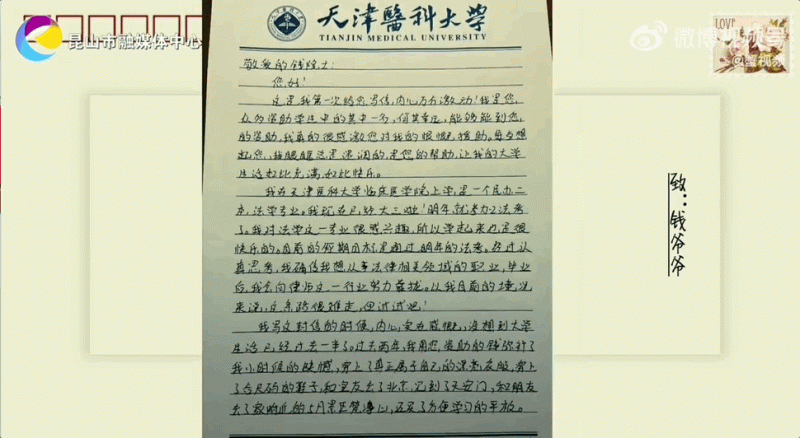 昆山市融媒体中心
微博视频号
@蟹视频
LOVE
致：钱爷爷
天津醫科大学
TIANJIN MEDICAL UNIVERSITY
敬爱的钱院士：
您好！
这是我第一次给您写信，内心万分激动！我是您
众多资助学生中的其中一名，何其幸运，能够碰到您
的资助，我真的很感激您对我的慷慨援助。每每想
起您，我眼眶总是湿润的，是您的帮助，让我的大学
生活如此充满，如此快乐。
我在天津医科大学临床医学院上学，是一个民办二
本，法学专业。我现在已经大三啦！明年就参加法考
了。我对法学这一专业很感兴趣，所以学起来也是很
快乐的。目前的短期目标是通过明年的法考。经过认
真思考，我确信我想从事法律相关领域的职业，毕业
后，我会向律师这一行业努力靠拢。以我目前的境况
来说，这条路很难走，但试试吧！
我写这封信的时候，内心实在感慨，没想到大学
生活已经过去一半了。过去两年，我用您资助的钱弥补了
我小时候的缺憾，穿上了真正属于自己的漂亮衣服，穿上
了合尺码的鞋子，和室友去了北京，见到了天安门，和朋友
去了
，还买了方便学习的平板。